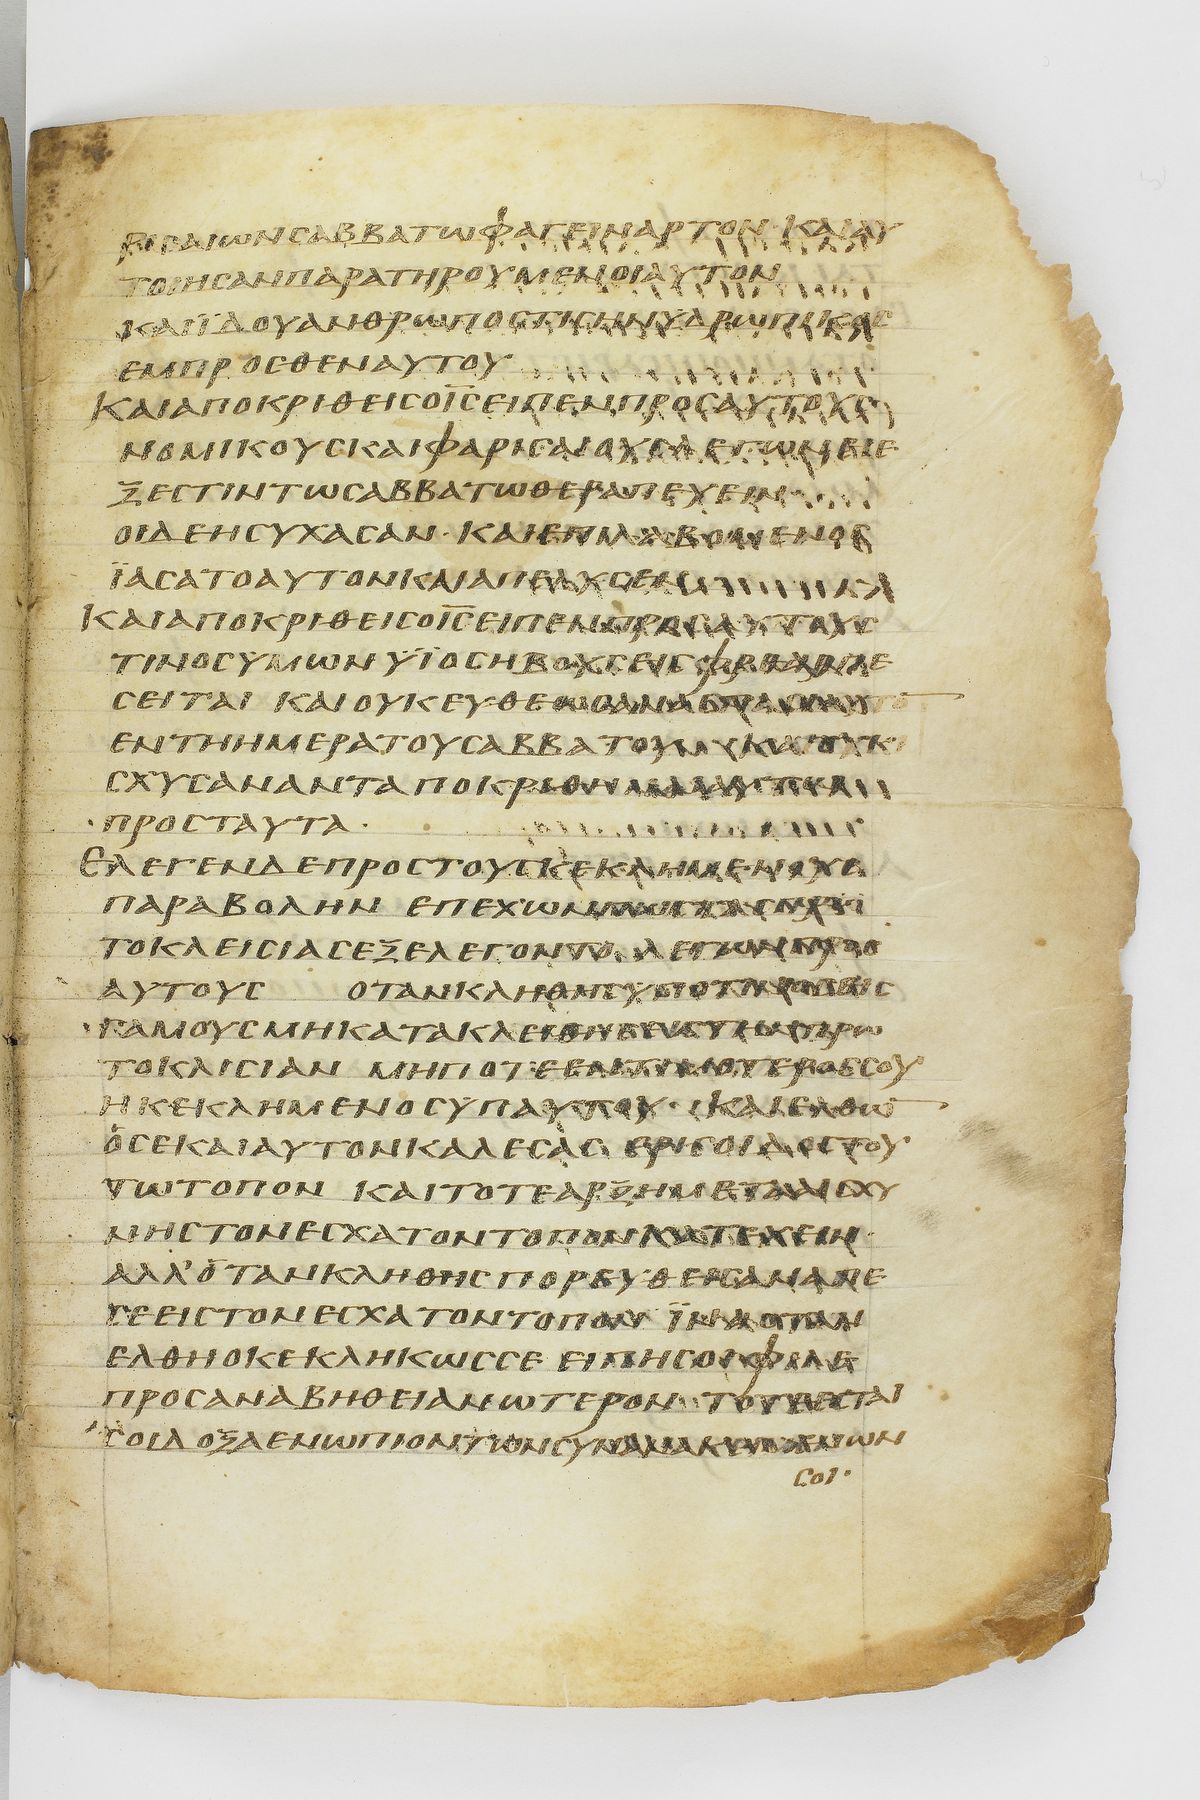 ΡΙCΑΙΩΝCΑΒΒΑΤΩΦΑΓΕΙΝΑΡΤΟΝ·ΚΑΙΑΥ
ΤΟΙΗCΑΝΠΑΡΑΤΗΡΟΥΜΕΝΟΙΑΥΤΟΝ
ΚΑΙΪΔΟΥΑΝΘΡΩΠΟCΤΙCΗΝΥΔΡΩΠΙΚΟC
ΕΜΠΡΟCΘΕΝΑΥΤΟΥ
ΚΑΙΑΠΟΚΡΙΘΕΙCΟΙ̅C̅ΕΙΠΕΝΠΡΟC
ΝΟΜΙΚΟΥCΚΑΙΦΑΡΙCΑΙΟΥCΛΕΓΩΝΕΙΕ
ΞΕCΤΙΝΤΩCΑΒΒΑΤΩΘΕΡΑΠΕΥΕΙΝ·
ΟΙΔΕΗCΥΧΑCΑΝ·ΚΑΙΕΠΙΛΑΒΟΜΕΝΟC
ΪΑCΑΤΟΑΥΤΟΝΚΑΙΑΠΕΛΥCΕΝ
ΚΑΙΑΠΟΚΡΙΘΕΙCΟΙ̅C̅ΕΙΠΕΝΠΡΟCΑΥΤΟΥC
ΤΙΝΟCΥΜΩΝΥΪΟCΗΒΟΥCΕΙC
CΕΙΤΑΙ ΚΑΙΟΥΚΕΥΘΕΩC
ΕΝΤΗΗΜΕΡΑΤΟΥCΑΒΒΑΤΟΥ ΚΑΙΟΥΚ
CΧΥCΑΝΑΝΤΑΠΟΚΡΙΘΗΝΑΙΑΥΤΩ
·ΠΡΟCΤΑΥΤΑ·
ΕΛΕΓΕΝΔΕΠΡΟCΤΟΥCΚΕΚΛΗΜΕΝΟΥC
ΠΑΡΑΒΟΛΗΝ ΕΠΕΧΩΝ
ΤΟΚΛΕΙCΙΑCΕΞΕΛΕΓΟΝΤΟ ΛΕΓΩΝΠΡΟC
ΑΥΤΟΥC ΟΤΑΝΚΛΗΘΗCΥΠΟΤΙΝΟCΕΙC
ΓΑΜΟΥCΜΗΚΑΤΑΚΛΕΙΘΗC
ΤΟΚΛΙCΙΑΝ ΜΗΠΟΤΕΕΝΤΙΜΟΤΕΡΟCCΟΥ
ΗΚΕΚΛΗΜΕΝΟCΥΠΑΥΤΟΥ·ΚΑΙΕΛΘΩ̅
ΟCΕΚΑΙΑΥΤΟΝΚΑΛΕCΑC ΕΡΙCΟΙΔΟCΤΟΥ
ΤΩΤΟΠΟΝ ΚΑΙΤΟΤΕΑΡΞΗΜΕΤΑΑΙCΧΥ
ΝΗCΤΟΝΕCΧΑΤΟΝΤΟΠΟΝΚΑΤΕΧΕΙΝ·
ΑΛΛ'ΟΤΑΝΚΛΗΘΗCΠΟΡΕΥΘΕΙCΑΝΑΠΕ
CΕΕΙCΤΟΝΕCΧΑΤΟΝΤΟΠΟΝ ΪΝΑΟΤΑΝ
ΕΛΘΗΟΚΕΚΛΗΚΩCCΕ ΕΙΠΗCΟΙΦΙΛΕ
ΠΡΟCΑΝΑΒΗΘΕΙΑΝΩΤΕΡΟΝ·ΤΟΤΕΕCΤΑΙ
CΟΙΔΟΞΑΕΝΩΠΙΟΝΤΩΝCΥΝΑΝΑΚΕΙΜΕΝΩΝ
CΟΙ·